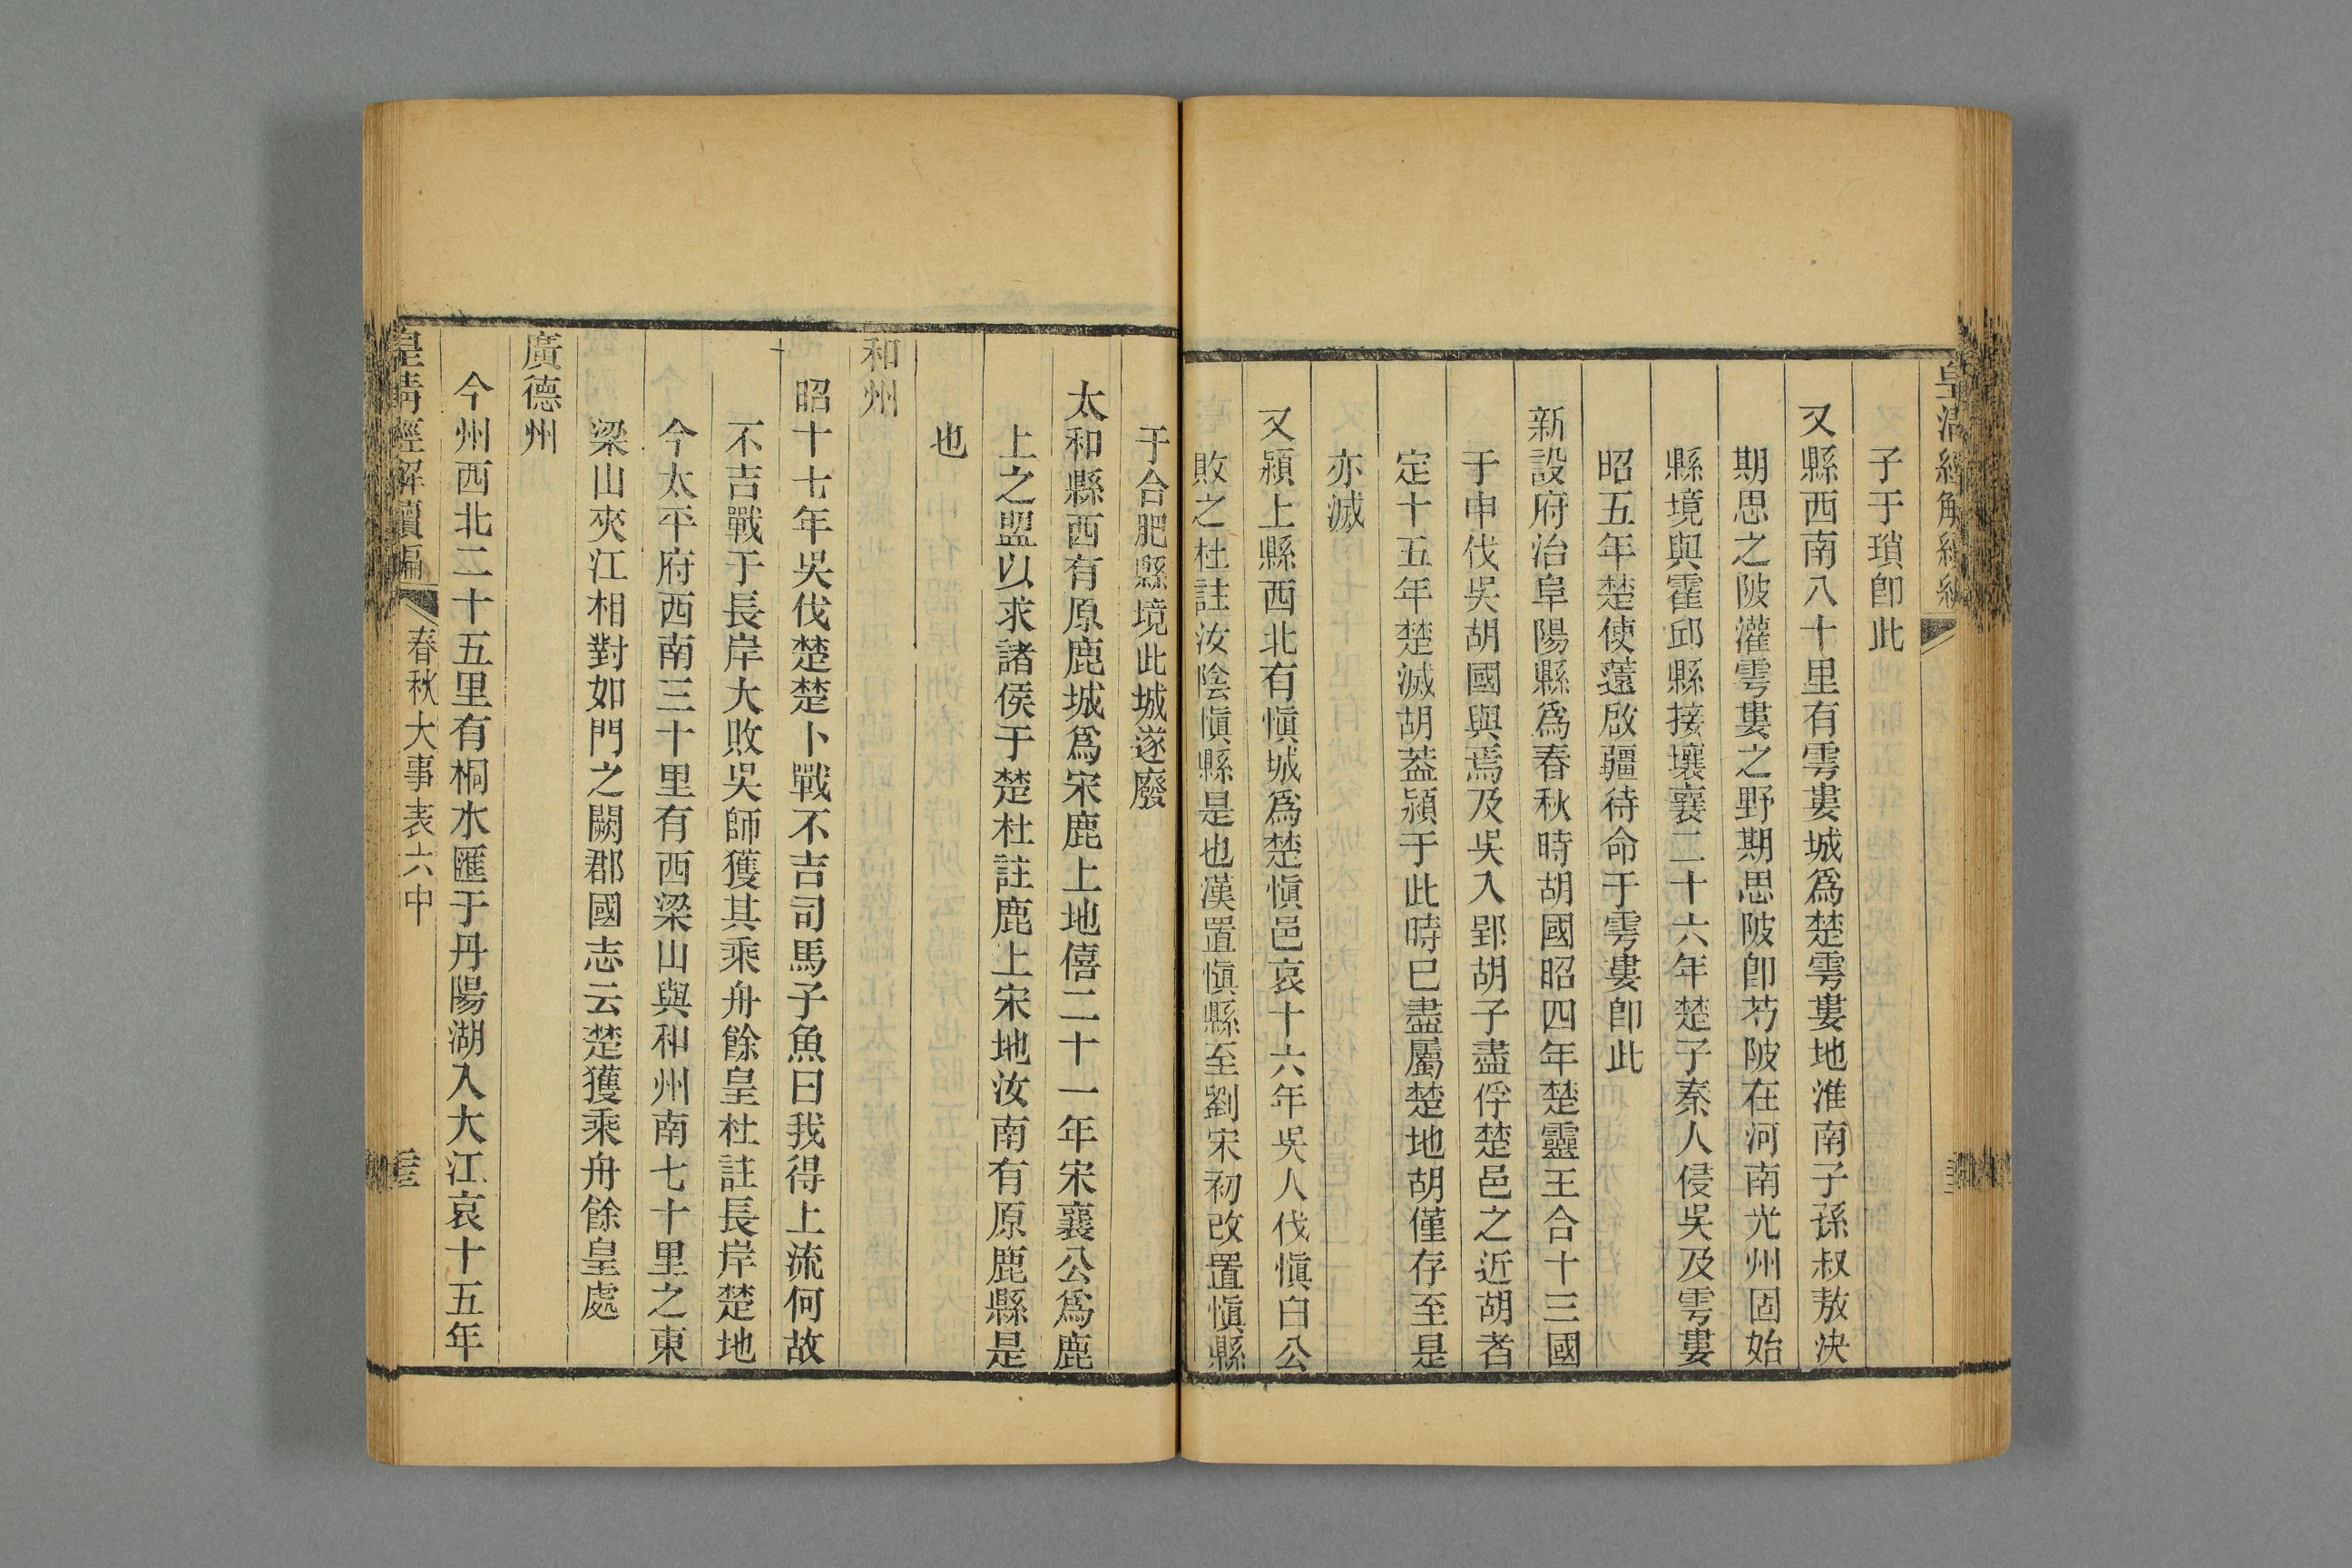 子于瑣卽此
又縣西南八十里有雩婁城爲楚雩婁地淮南子孫叔敖決
期思之陂灌雩婁之野期思陂卽芍陂在河南光州固始
縣境與霍邱縣接壤襄二十六年楚子秦人侵吳及雩婁
昭五年楚使薳啟疆待命于雩婁卽此
新設府治阜陽縣爲春秋時胡國昭四年楚靈王合十三國
于申伐吳胡國與焉及吳入郢胡子盡俘楚邑之近胡者
定十五年楚滅胡蓋潁于此時已盡屬楚地胡僅存至是
亦滅
又潁上縣西北有愼城爲楚愼邑哀十六年吳人伐愼白公
敗之杜註汝陰愼縣是也漢置愼縣至劉宋初改置愼縣
于合肥縣境此城遂廢
太和縣西有原鹿城爲宋鹿上地僖二十一年宋襄公爲鹿
上之盟以求諸侯于楚杜註鹿上宋地汝南有原鹿縣是
也
和州
昭十七年吳伐楚楚卜戰不吉司馬子魚曰我得上流何故
不吉戰于長岸大敗吳師獲其乘舟餘皇杜註長岸楚地
今太平府西南三十里有西梁山與和州南七十里之東
梁山夾江相對如門之闕郡國志云楚獲乘舟餘皇處
廣德州
今州西北二十五里有桐水匯于丹陽湖入大江哀十五年
皇淸經解續編 春秋大事表六中